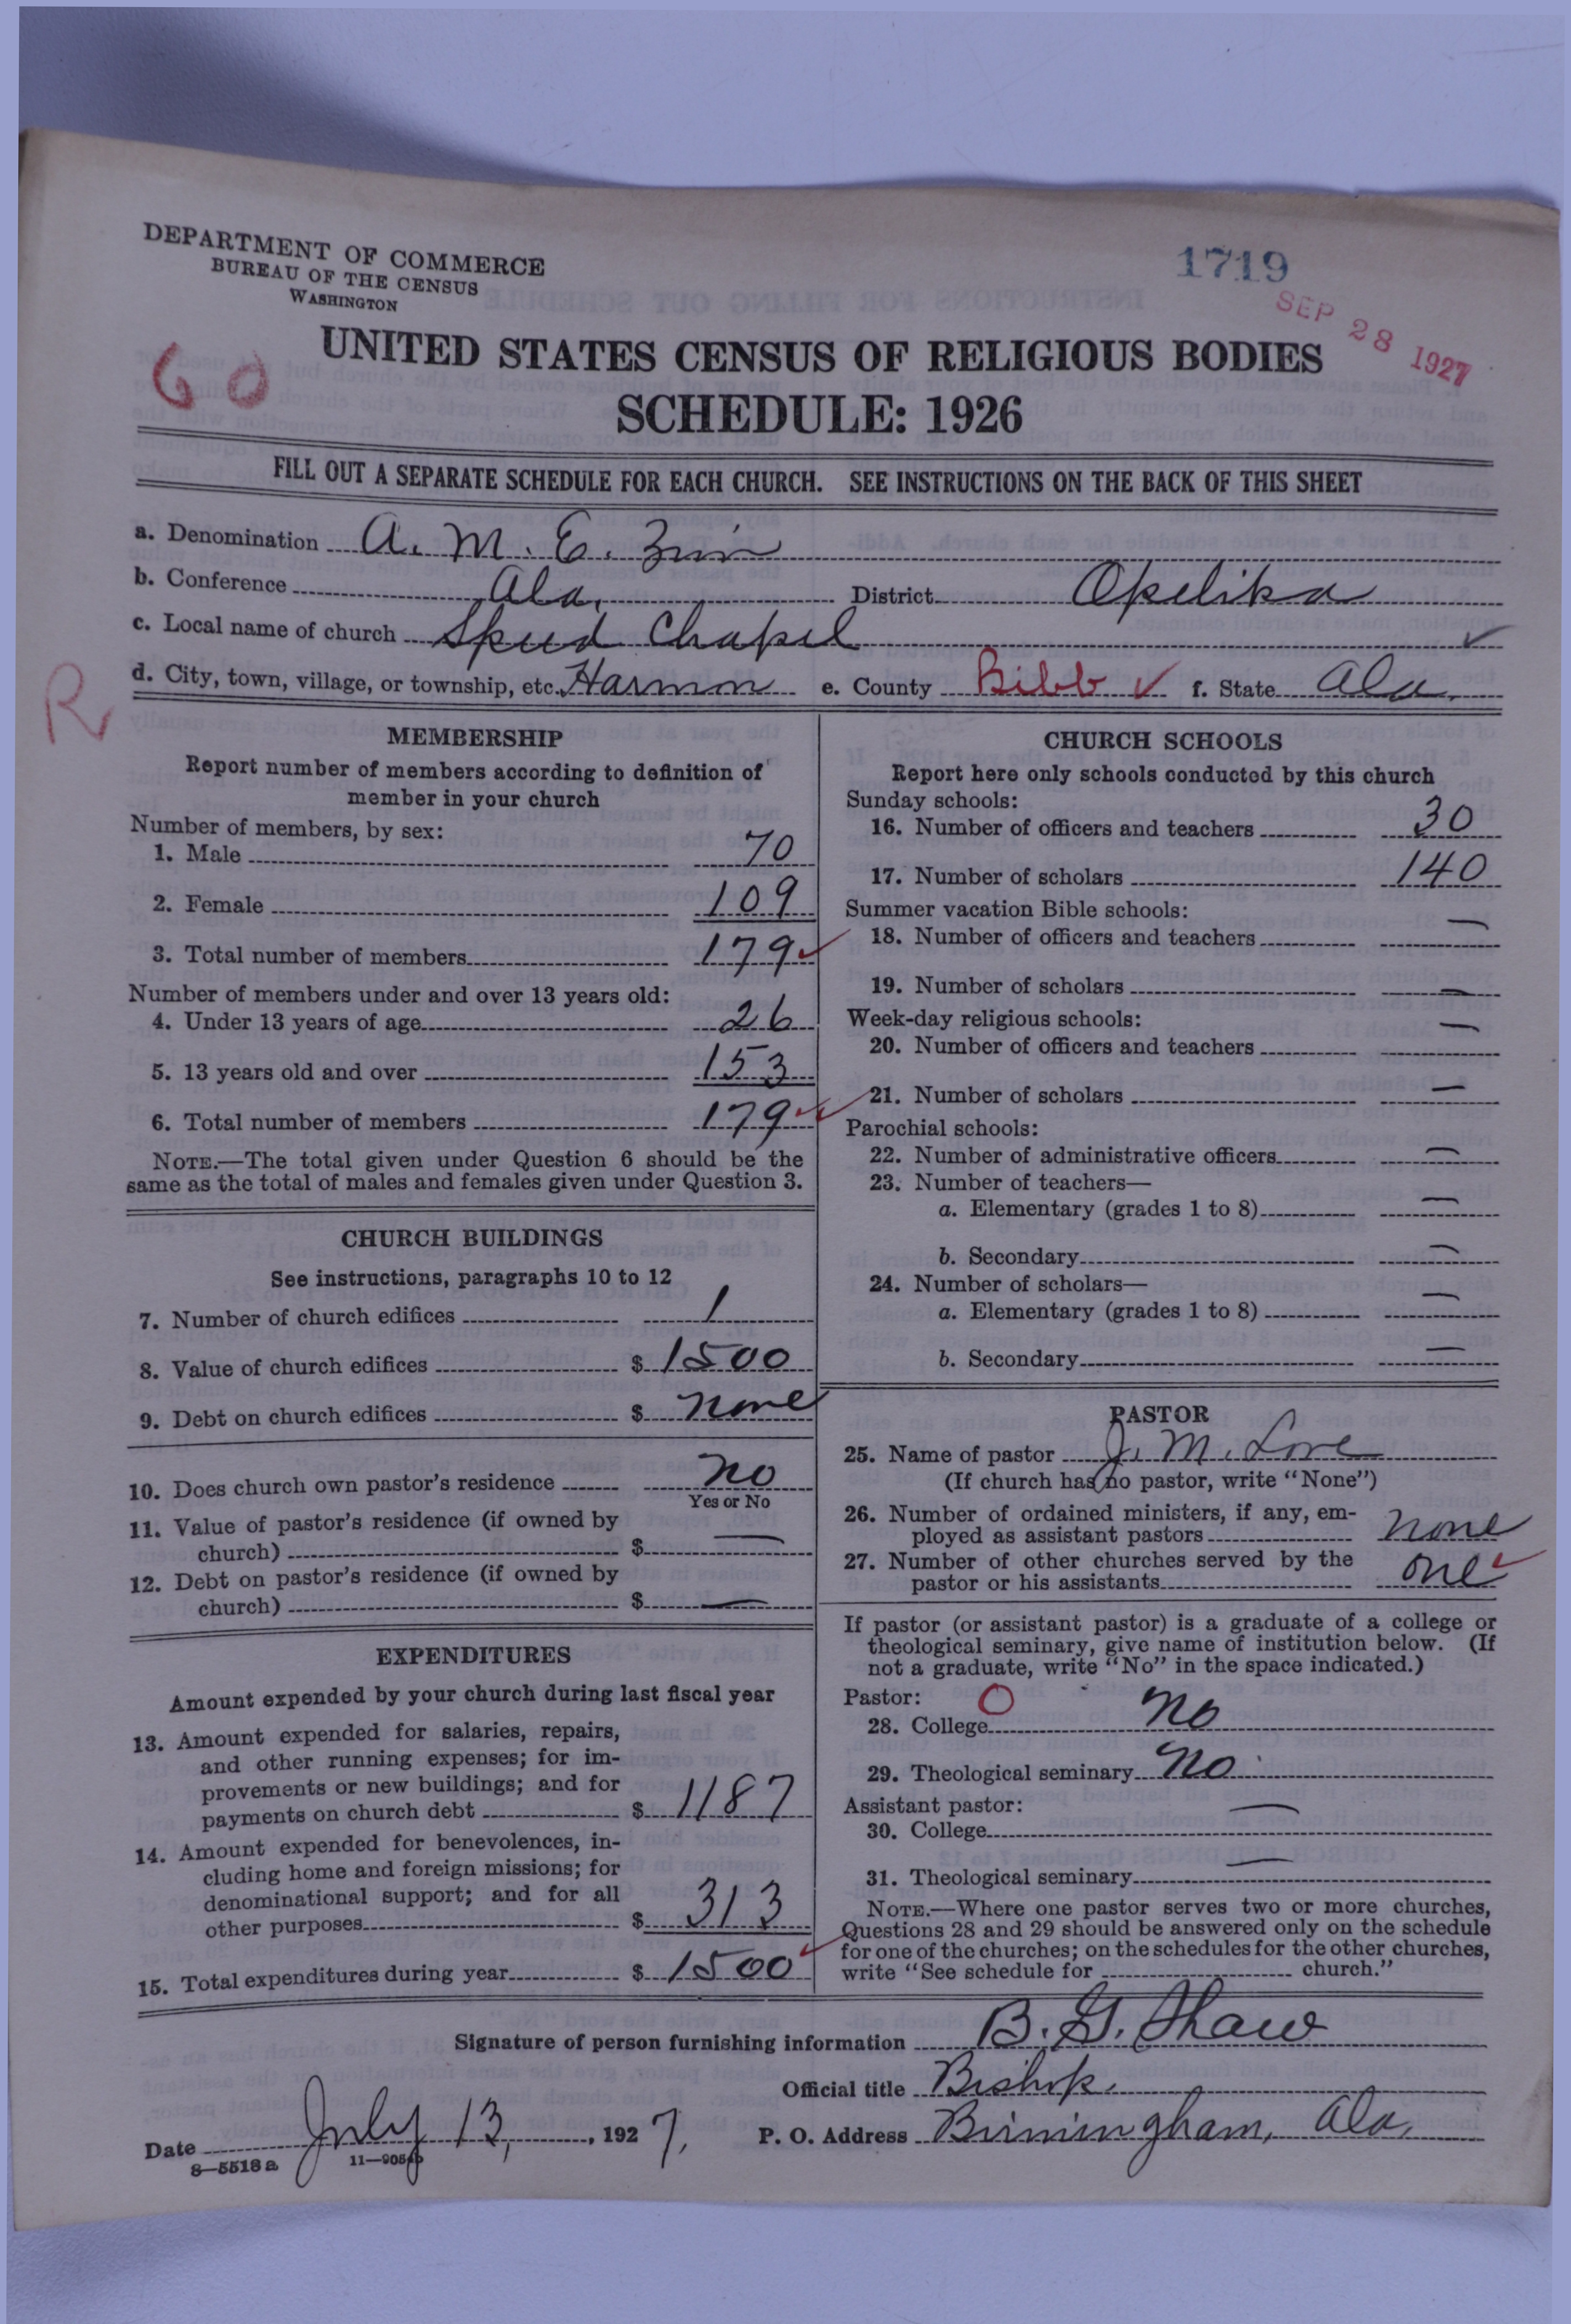 DEPARTMENT OF COMMERCE
BUREAU OF THE CENSUS
WASHINGTON
1719
SEP 28 1927
60
UNITED STATES CENSUS OF RELIGIOUS BODIES
SCHEDULE: 1926
FILL OUT A SEPARATE SCHEDULE FOR EACH CHURCH. SEE INSTRUCTIONS ON THE BACK OF THIS SHEET
a. Denomination A. M. E. Zion
b. Conference Ala. District Opelika
c. Local name of church Spud Chapel
d. City, town, village, or township, etc. Harmon e. County Bibb f. State Ala.
R
MEMBERSHIP
Report number of members according to definition of
member in your church
Number of members, by sex:
1. Male 70
2. Female 109
3. Total number of members 179
Number of members under and over 13 years old:
4. Under 13 years of age 26
5. 13 years old and over 153
6. Total number of members 179
NOTE.—The total given under Question 6 should be the
same as the total of males and females given under Question 3.
CHURCH BUILDINGS
See instructions, paragraphs 10 to 12
7. Number of church edifices 1
8. Value of church edifices $ 1500
9. Debt on church edifices $ none
10. Does church own pastor's residence no
Yes or No
11. Value of pastor's residence (if owned by
church) $ —
12. Debt on pastor's residence (if owned by
church) $ —
EXPENDITURES
Amount expended by your church during last fiscal year
13. Amount expended for salaries, repairs,
and other running expenses; for im-
provements or new buildings; and for
payments on church debt $ 1187
14. Amount expended for benevolences, in-
cluding home and foreign missions; for
denominational support; and for all
other purposes $ 313
15. Total expenditures during year $ 1500
CHURCH SCHOOLS
Report here only schools conducted by this church
Sunday schools:
16. Number of officers and teachers 30
17. Number of scholars 140
Summer vacation Bible schools:
18. Number of officers and teachers —
19. Number of scholars —
Week-day religious schools:
20. Number of officers and teachers —
21. Number of scholars —
Parochial schools:
22. Number of administrative officers —
23. Number of teachers—
a. Elementary (grades 1 to 8) —
b. Secondary —
24. Number of scholars—
a. Elementary (grades 1 to 8) —
b. Secondary —
PASTOR
25. Name of pastor J. M. Love
(If church has no pastor, write "None")
26. Number of ordained ministers, if any, em-
ployed as assistant pastors none
27. Number of other churches served by the
pastor or his assistants one
If pastor (or assistant pastor) is a graduate of a college or
theological seminary, give name of institution below. (If
not a graduate, write "No" in the space indicated.)
Pastor: O
28. College no
29. Theological seminary no
Assistant pastor:
30. College —
31. Theological seminary —
NOTE.—Where one pastor serves two or more churches,
Questions 28 and 29 should be answered only on the schedule
for one of the churches; on the schedules for the other churches,
write "See schedule for church."
Signature of person furnishing information B. G. Shaw
Official title Bishop.
Date July 13, 1927, P. O. Address Birmingham, Ala.
8—5518a